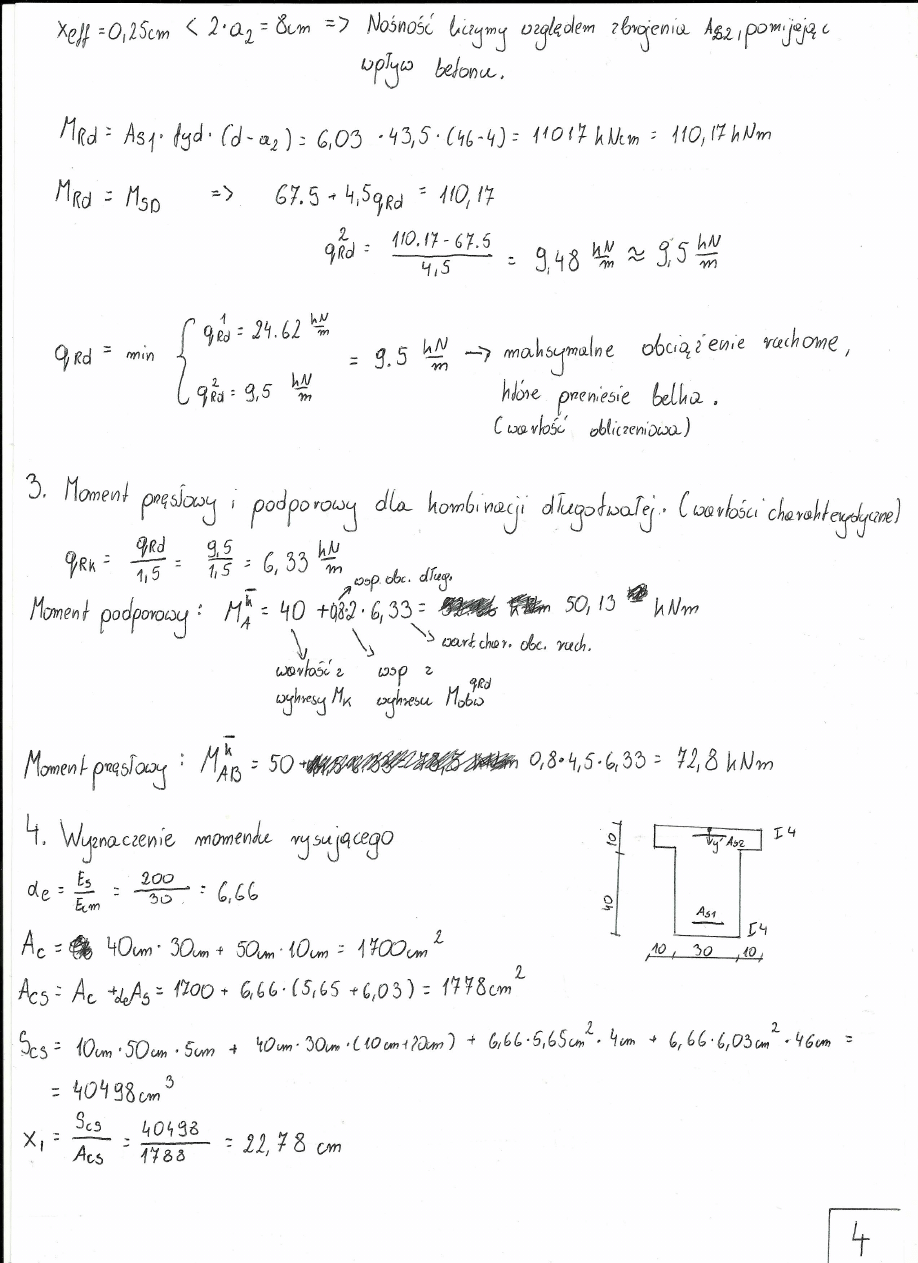 x_eff = 0,25cm < 2·a₂ = 8cm => Nośność liczymy względem zbrojenia A_S2, pomijając
wpływ betonu.
M_Rd = A_S1 · fyd · (d-a₂) = 6,03 · 43,5 · (46-4) = 11017 kNcm = 110,17 kNm
M_Rd = M_SD => 67.5 + 4,5 q_Rd = 110,17
q²_Rd = (110.17 - 67.5) / 4,5 = 9,48 kN/m ≈ 9,5 kN/m
q_Rd = min { q¹_Rd = 24.62 kN/m ; q²_Rd = 9,5 kN/m = 9.5 kN/m → maksymalne obciążenie ruchome,
które przeniesie belka.
(wartość obliczeniowa)
3. Moment przęsłowy i podporowy dla kombinacji długotwałej. (wartości charakterystyczne)
q_Rk = q_Rd / 1,5 = 9,5 / 1,5 = 6,33 kN/m
wsp. obc. dług.
Moment podporowy : M_A^k = 40 + 0,8·2 · 6,33 = 50,13 kNm
wart. char. obc. ruch.
wartość z wsp z
wykresy M_k wykresu M_obw^qRd
Moment przęsłowy : M_AB^k = 50 + 0,8·4,5·6,33 = 72,8 kNm
4. Wyznaczenie momentu rysującego
α_e = E_s / E_cm = 200 / 30 = 6,66
A_c = 40cm · 30cm + 50cm · 10cm = 1700cm²
A_cs = A_c + α_e A_s = 1700 + 6,66 · (5,65 + 6,03) = 1778cm²
S_cs = 10cm · 50cm · 5cm + 40cm · 30cm · (10cm + 20cm) + 6,66 · 5,65cm² · 4cm + 6,66 · 6,03cm² · 46cm =
= 40498cm³
x₁ = S_cs / A_cs = 40498 / 1788 = 22,78 cm
10
40
y' A_S2
I 4
A_S1
I 4
10 30 10
4